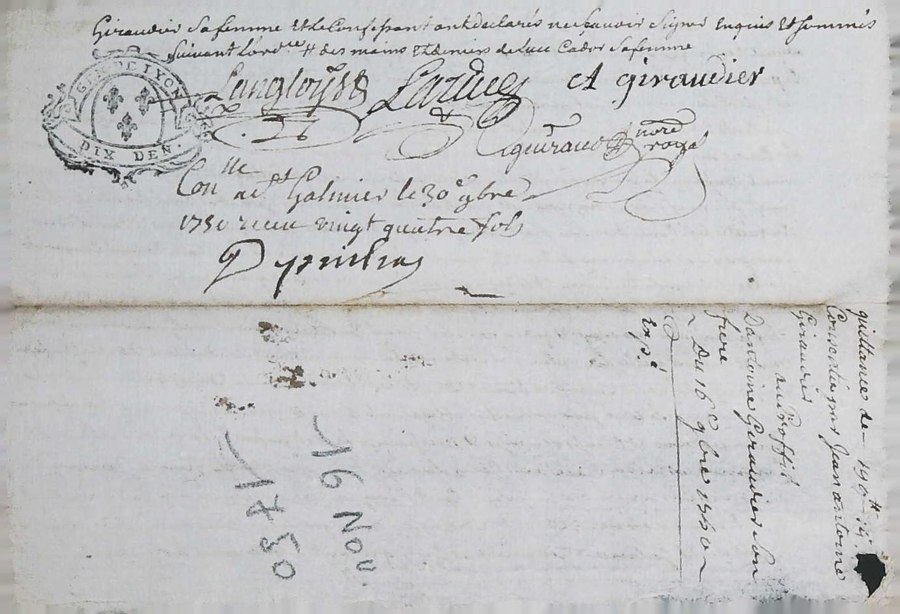 Giraudier sa femme & le Confessant ont declarés ne sçavoir signer Enquis & sommés
suivant l'ord.ce # des mains & deniers de sa femme
GEN DE LYON
DIX DEN.
et giraudier
nore
royal
Con.lle a S.t Galmier le 30.e 9bre
1750 receu vingt quatre sols
quittance de 190#
par Jean antoine
Giraudier
au Proffit
D'antoine Giraudier son
frere
Du 16.e 9bre 1750
Exp.é
16 Nov.
1750